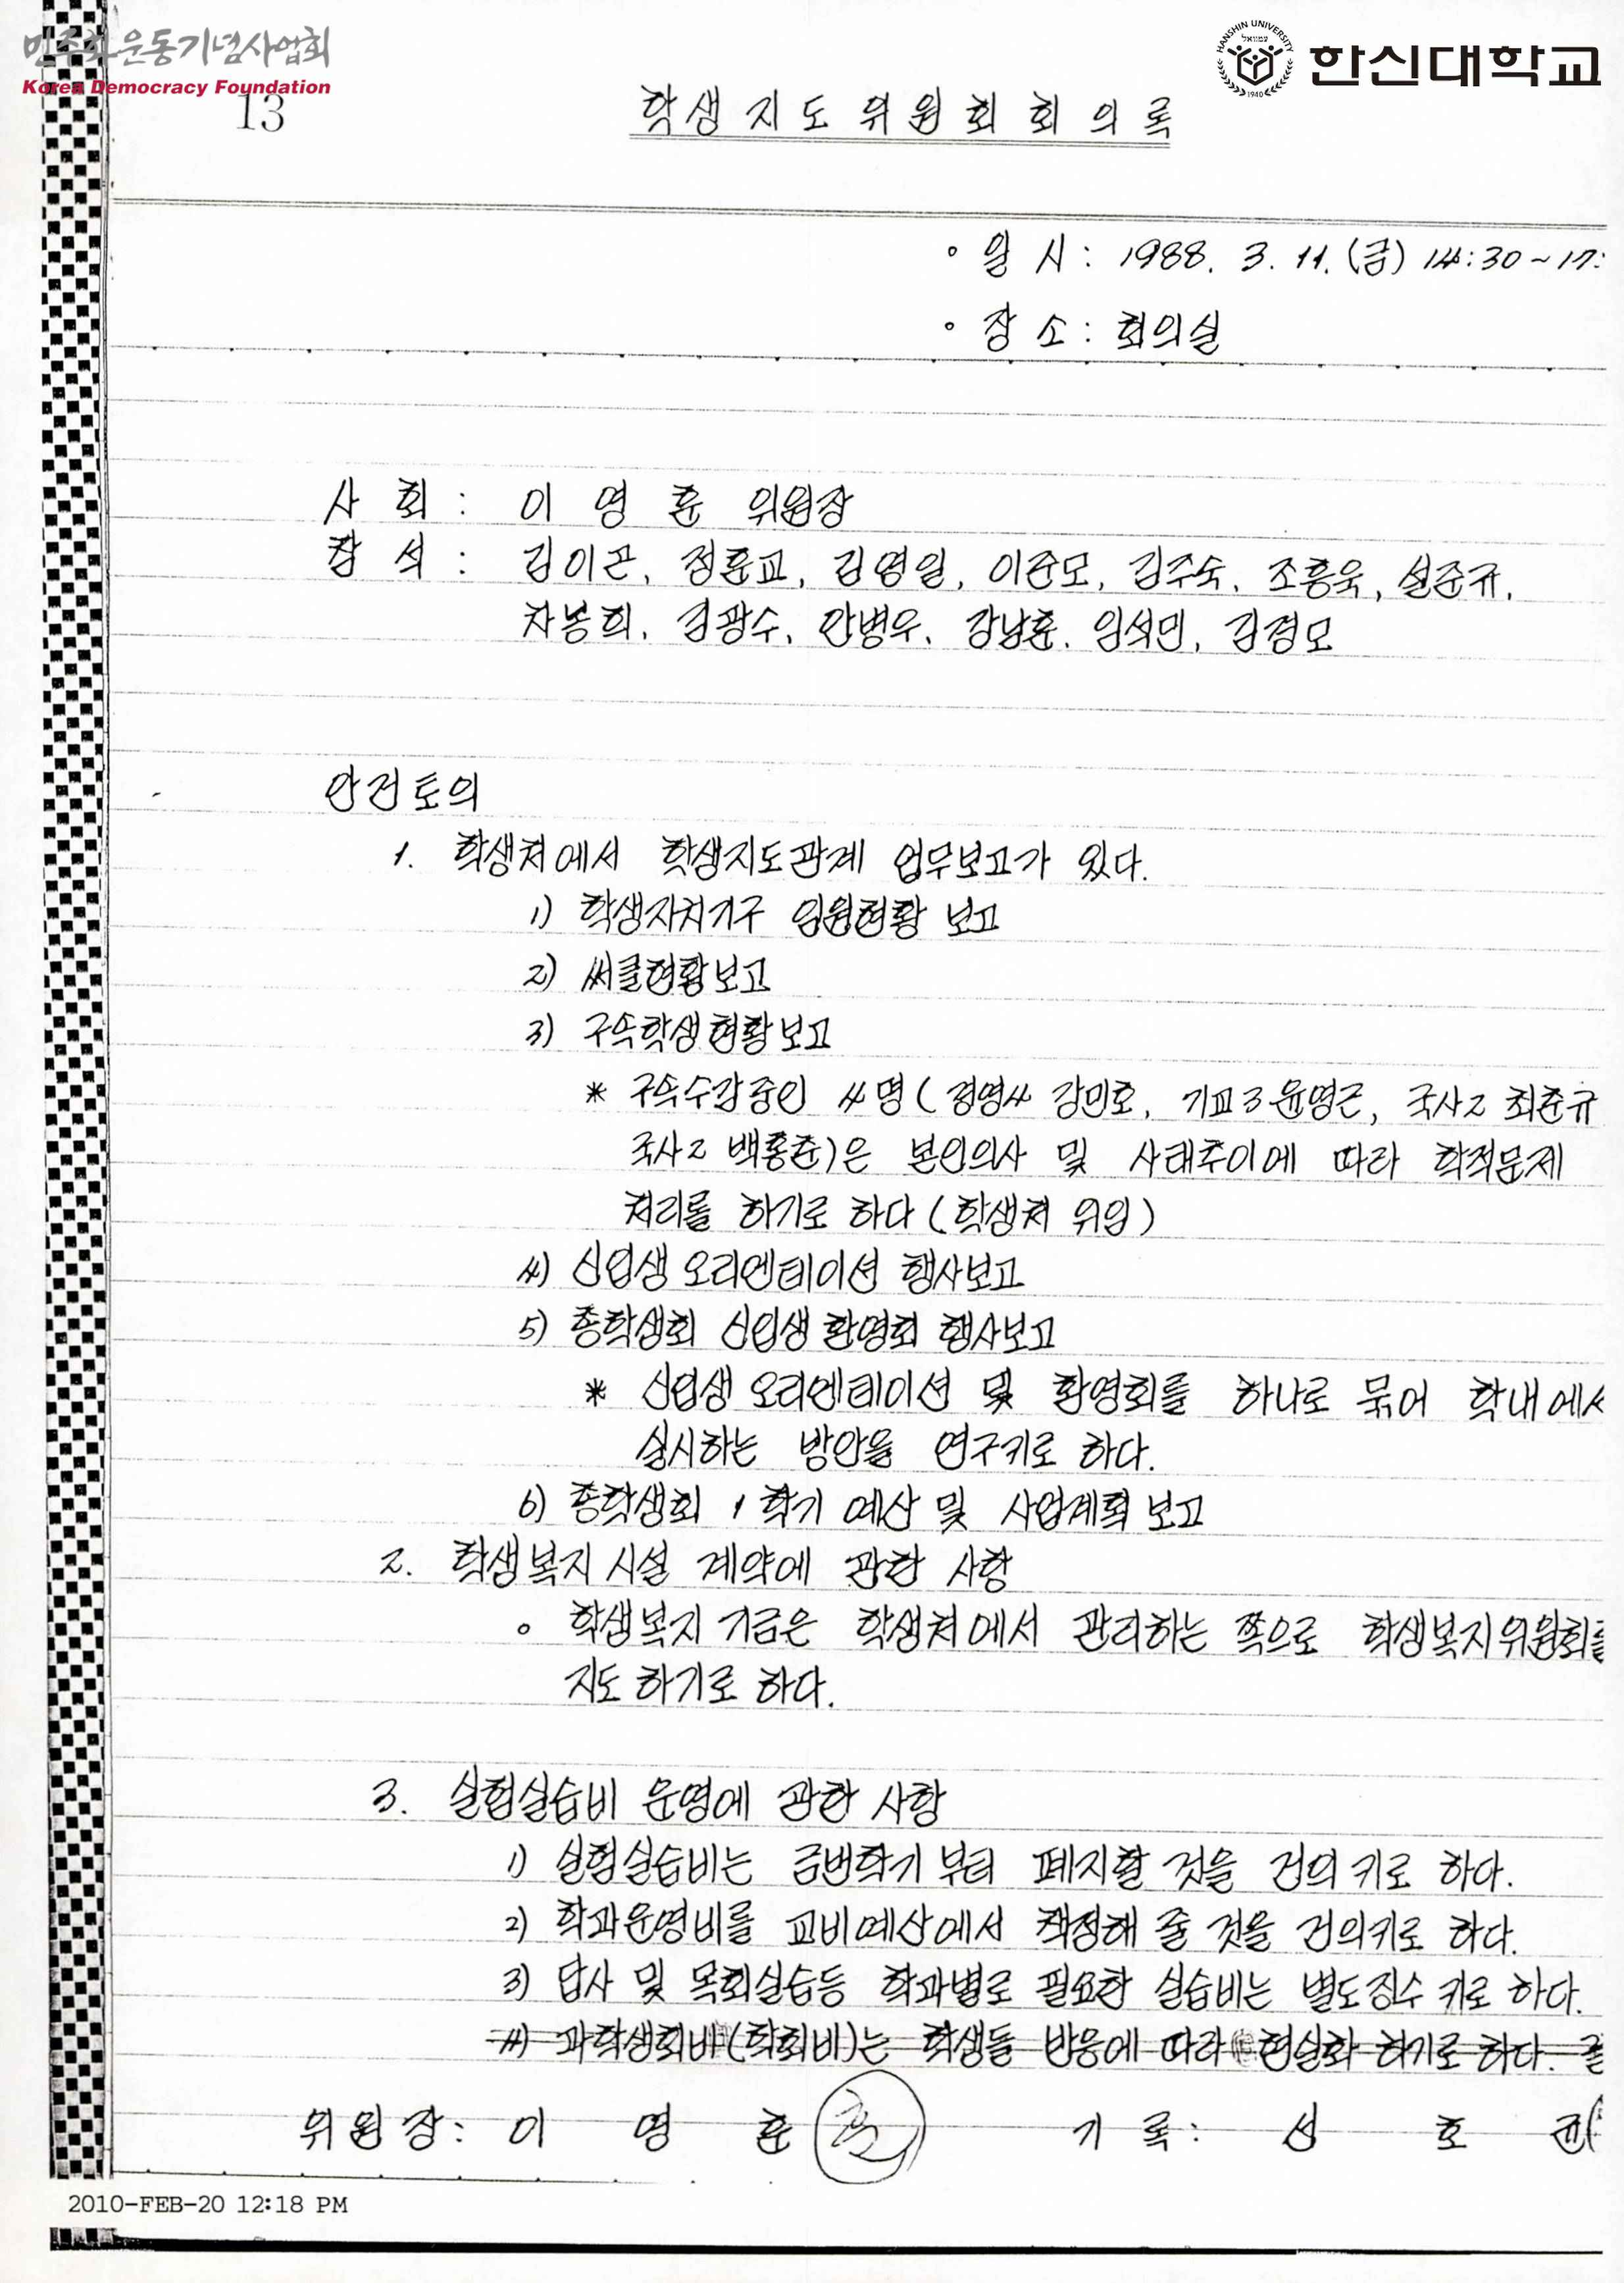 민주화운동기념사업회
Korea Democracy Foundation
HANSHIN UNIVERSITY
1940
한신대학교
13
학생지도위원회회의록
° 일 시 : 1988. 3. 11. (금) 14:30 ~ 17:
° 장 소 : 회의실
사 회 : 이 영 훈 위원장
참 석 : 김이곤, 정훈교, 김영일, 이준모, 김주숙, 조흥욱, 설준규,
차봉희, 김광수, 안병우, 강남훈, 임석민, 김경모
안건토의
1. 학생처에서 학생지도관계 업무보고가 있다.
1) 학생자치기구 임원현황 보고
2) 써클현황보고
3) 구속학생현황보고
* 구속수감중인 4명 ( 경영4 강민호, 기교3 윤영근, 국사2 최준규
국사2 백홍준)은 본인의사 및 사태추이에 따라 학적문제
처리를 하기로 하다 ( 학생처 위임 )
4) 신입생 오리엔테이션 행사보고
5) 총학생회 신입생 환영회 행사보고
* 신입생 오리엔테이션 및 환영회를 하나로 묶어 학내에서
실시하는 방안을 연구키로 하다.
6) 총학생회 1학기 예산 및 사업계획 보고
2. 학생복지 시설 계약에 관한 사항
° 학생복지 기금은 학생처에서 관리하는 쪽으로 학생복지위원회를
지도 하기로 하다.
3. 실험실습비 운영에 관한 사항
1) 실험실습비는 금번학기 부터 폐지할 것을 건의 키로 하다.
2) 학과운영비를 교비예산에서 책정해 줄 것을 건의키로 하다.
3) 답사 및 목회실습등 학과별로 필요한 실습비는 별도징수 키로 하다.
4) 과학생회비 (학회비)는 학생들 반응에 따라 현실화 하기로 하다.
위원장: 이 영 훈 기 록 : 성 호
2010-FEB-20 12:18 PM